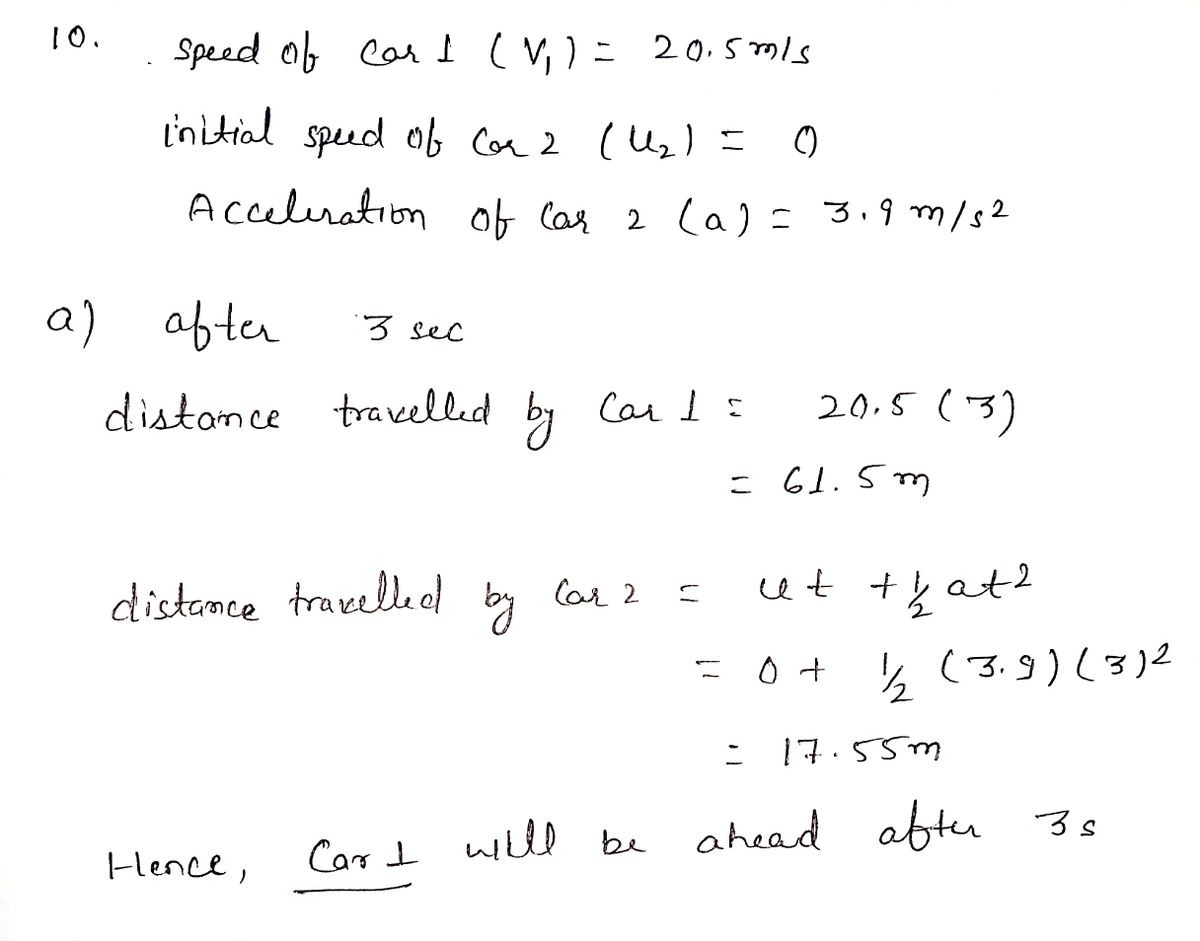 10. Speed of Car 1 (V₁) = 20.5 m/s
initial speed of Car 2 (U₂) = 0
Acceleration of Car 2 (a) = 3.9 m/s²
a) after 3 sec
distance travelled by Car 1 = 20.5 (3)
= 61.5 m
distance travelled by Car 2 = ut + ½ at²
= 0 + ½ (3.9) (3)²
= 17.55m
Hence, Car 1 will be ahead after 3s